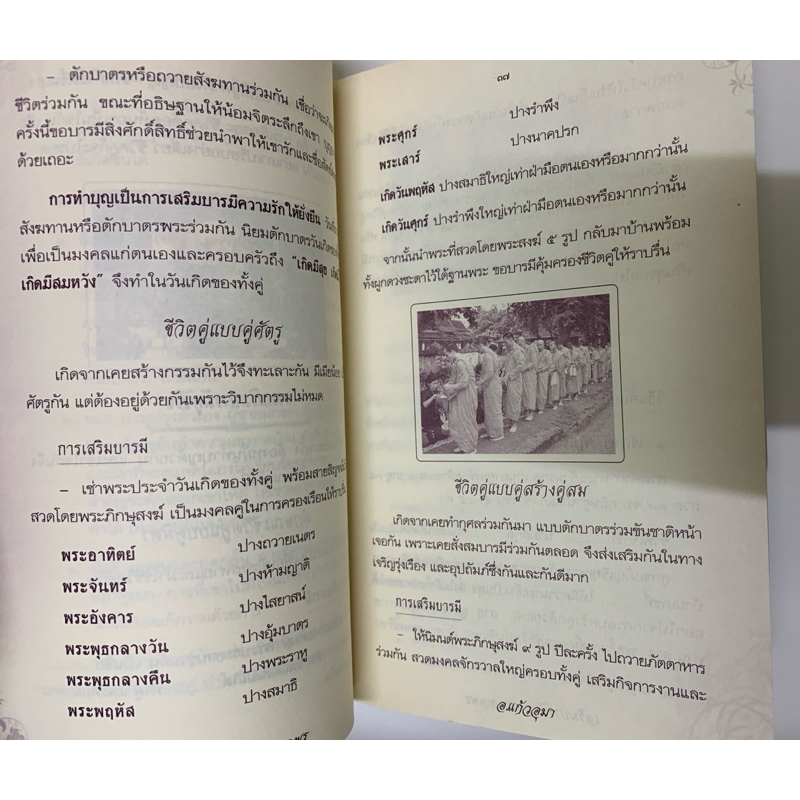 – ตักบาตรหรือถวายสังฆทานร่วมกัน เชื่อว่าจะ
ชีวิตร่วมกัน ขณะที่อธิษฐานให้น้อมจิตระลึกถึงเขา
ครั้งนี้ขอบารมีสิ่งศักดิ์สิทธิ์ช่วยนำพาให้เขารักและซื่อ
ด้วยเถอะ
การทำบุญเป็นการเสริมบารมีความรักให้ยั่งยืน
สังฆทานหรือตักบาตรพระร่วมกัน นิยมตักบาตรวันเกิด
เพื่อเป็นมงคลแก่ตนเองและครอบครัวถึง "เกิดมีสุข
เกิดมีสมหวัง" จึงทำในวันเกิดของทั้งคู่
ชีวิตคู่แบบคู่ศัตรู
เกิดจากเคยสร้างกรรมกันไว้จึงทะเลาะกัน มีเมียน้อย
ศัตรูกัน แต่ต้องอยู่ด้วยกันเพราะวิบากกรรมไม่หมด
การเสริมบารมี
– เช่าพระประจำวันเกิดของทั้งคู่ พร้อมสายสิญจน์
สวดโดยพระภิกษุสงฆ์ เป็นมงคลคู่ในการครองเรือนให้ราบรื่น
พระอาทิตย์ ปางถวายเนตร
พระจันทร์ ปางห้ามญาติ
พระอังคาร ปางไสยาสน์
พระพุธกลางวัน ปางอุ้มบาตร
พระพุธกลางคืน ปางพระราหู
พระพฤหัส ปางสมาธิ
๓๗
พระศุกร์ ปางรำพึง
พระเสาร์ ปางนาคปรก
เกิดวันพฤหัส ปางสมาธิใหญ่เท่าฝ่ามือตนเองหรือมากกว่านั้น
เกิดวันศุกร์ ปางรำพึงใหญ่เท่าฝ่ามือตนเองหรือมากกว่านั้น
จากนั้นนำพระที่สวดโดยพระสงฆ์ ๕ รูป กลับมาบ้านพร้อม
ทั้งผูกดวงชะตาไว้ใต้ฐานพระ ขอบารมีคุ้มครองชีวิตคู่ให้ราบรื่น
ชีวิตคู่แบบคู่สร้างคู่สม
เกิดจากเคยทำกุศลร่วมกันมา แบบตักบาตรร่วมขันชาติหน้า
เจอกัน เพราะเคยสั่งสมบารมีร่วมกันตลอด จึงส่งเสริมกันในทาง
เจริญรุ่งเรือง และอุปถัมภ์ซึ่งกันและกันดีมาก
การเสริมบารมี
– ให้นิมนต์พระภิกษุสงฆ์ ๙ รูป ปีละครั้ง ไปถวายภัตตาหาร
ร่วมกัน สวดมงคลจักรวาลใหญ่ครอบทั้งคู่ เสริมกิจการงานและ
อ.แก้วอุมา